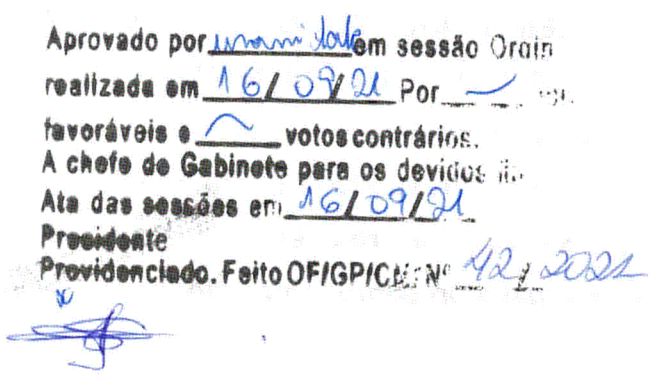 Aprovado por unanimidade em sessão Ordin
realizada em 16/09/21 Por
favoráveis e votos contrários.
A chefe de Gabinete para os devidos
Ata das sessões em 16/09/21
Presidente
Providenciado. Feito OF/GP/CM Nº 42/2021